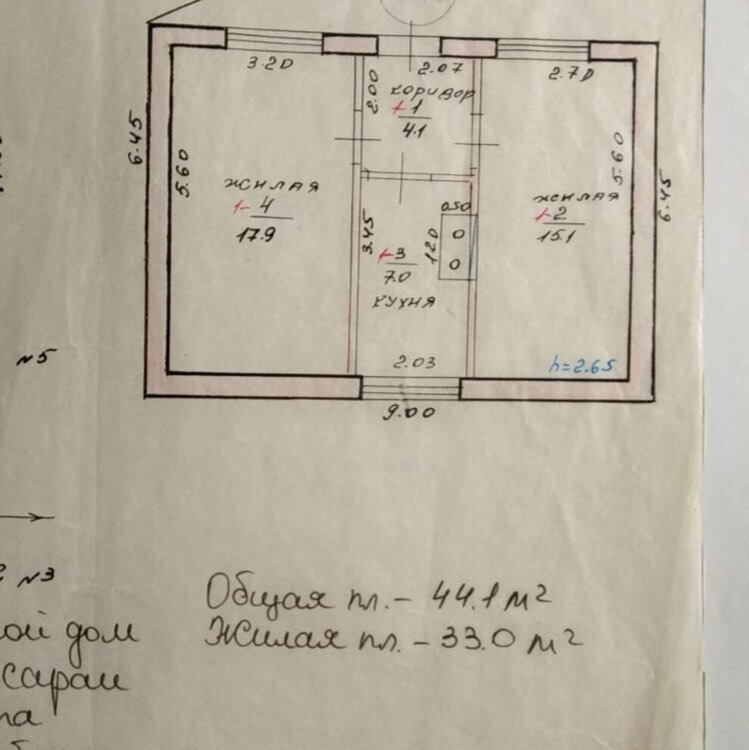 3.20
2.07
2.70
6.45
5.60
2.00
коридор
1
4.1
5.60
6.45
жилая
1-4
17.9
3.45
1-3
7.0
кухня
0.50
1.20
жилая
1-2
15.1
2.03
h=2.65
9.00
№5
№3
Общая пл.- 44.1 м²
Жилая пл.- 33.0 м²
ой дом
сараи